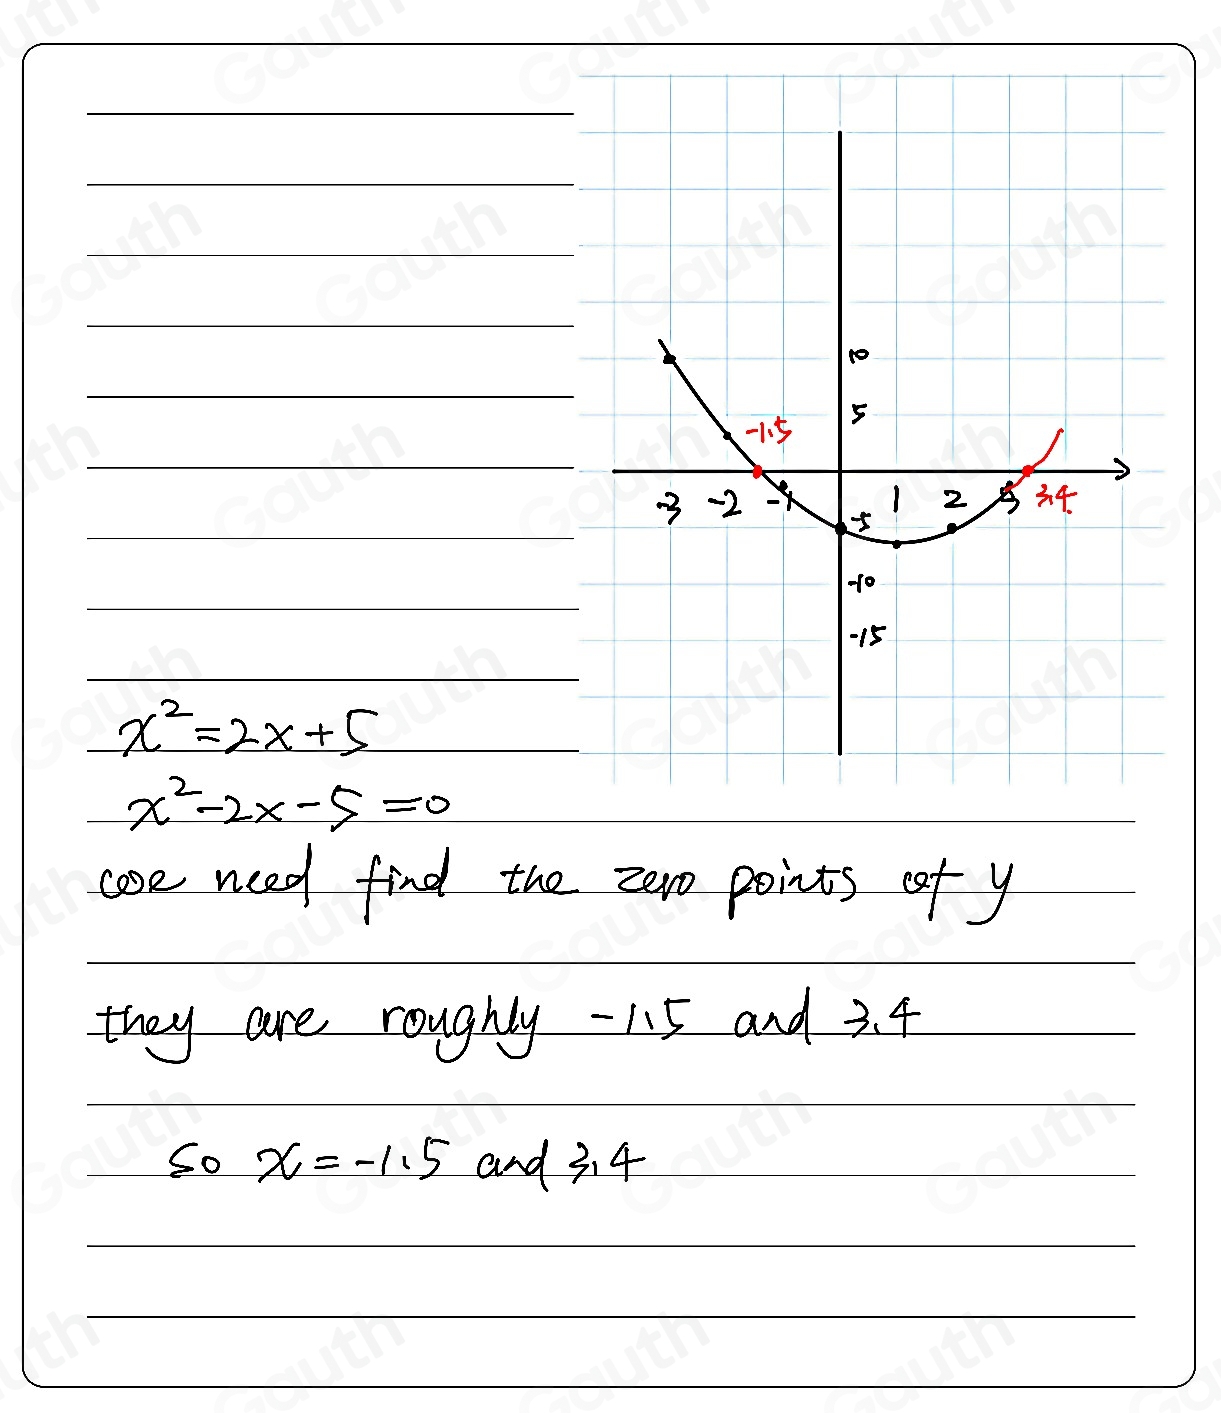 10
5
-1.5
-3 -2 -1 1 2 3 3.4
-5
-10
-15
x²=2x+5
x²-2x-5=0
we need find the zero points of y
they are roughly -1.5 and 3.4
so x=-1.5 and 3.4